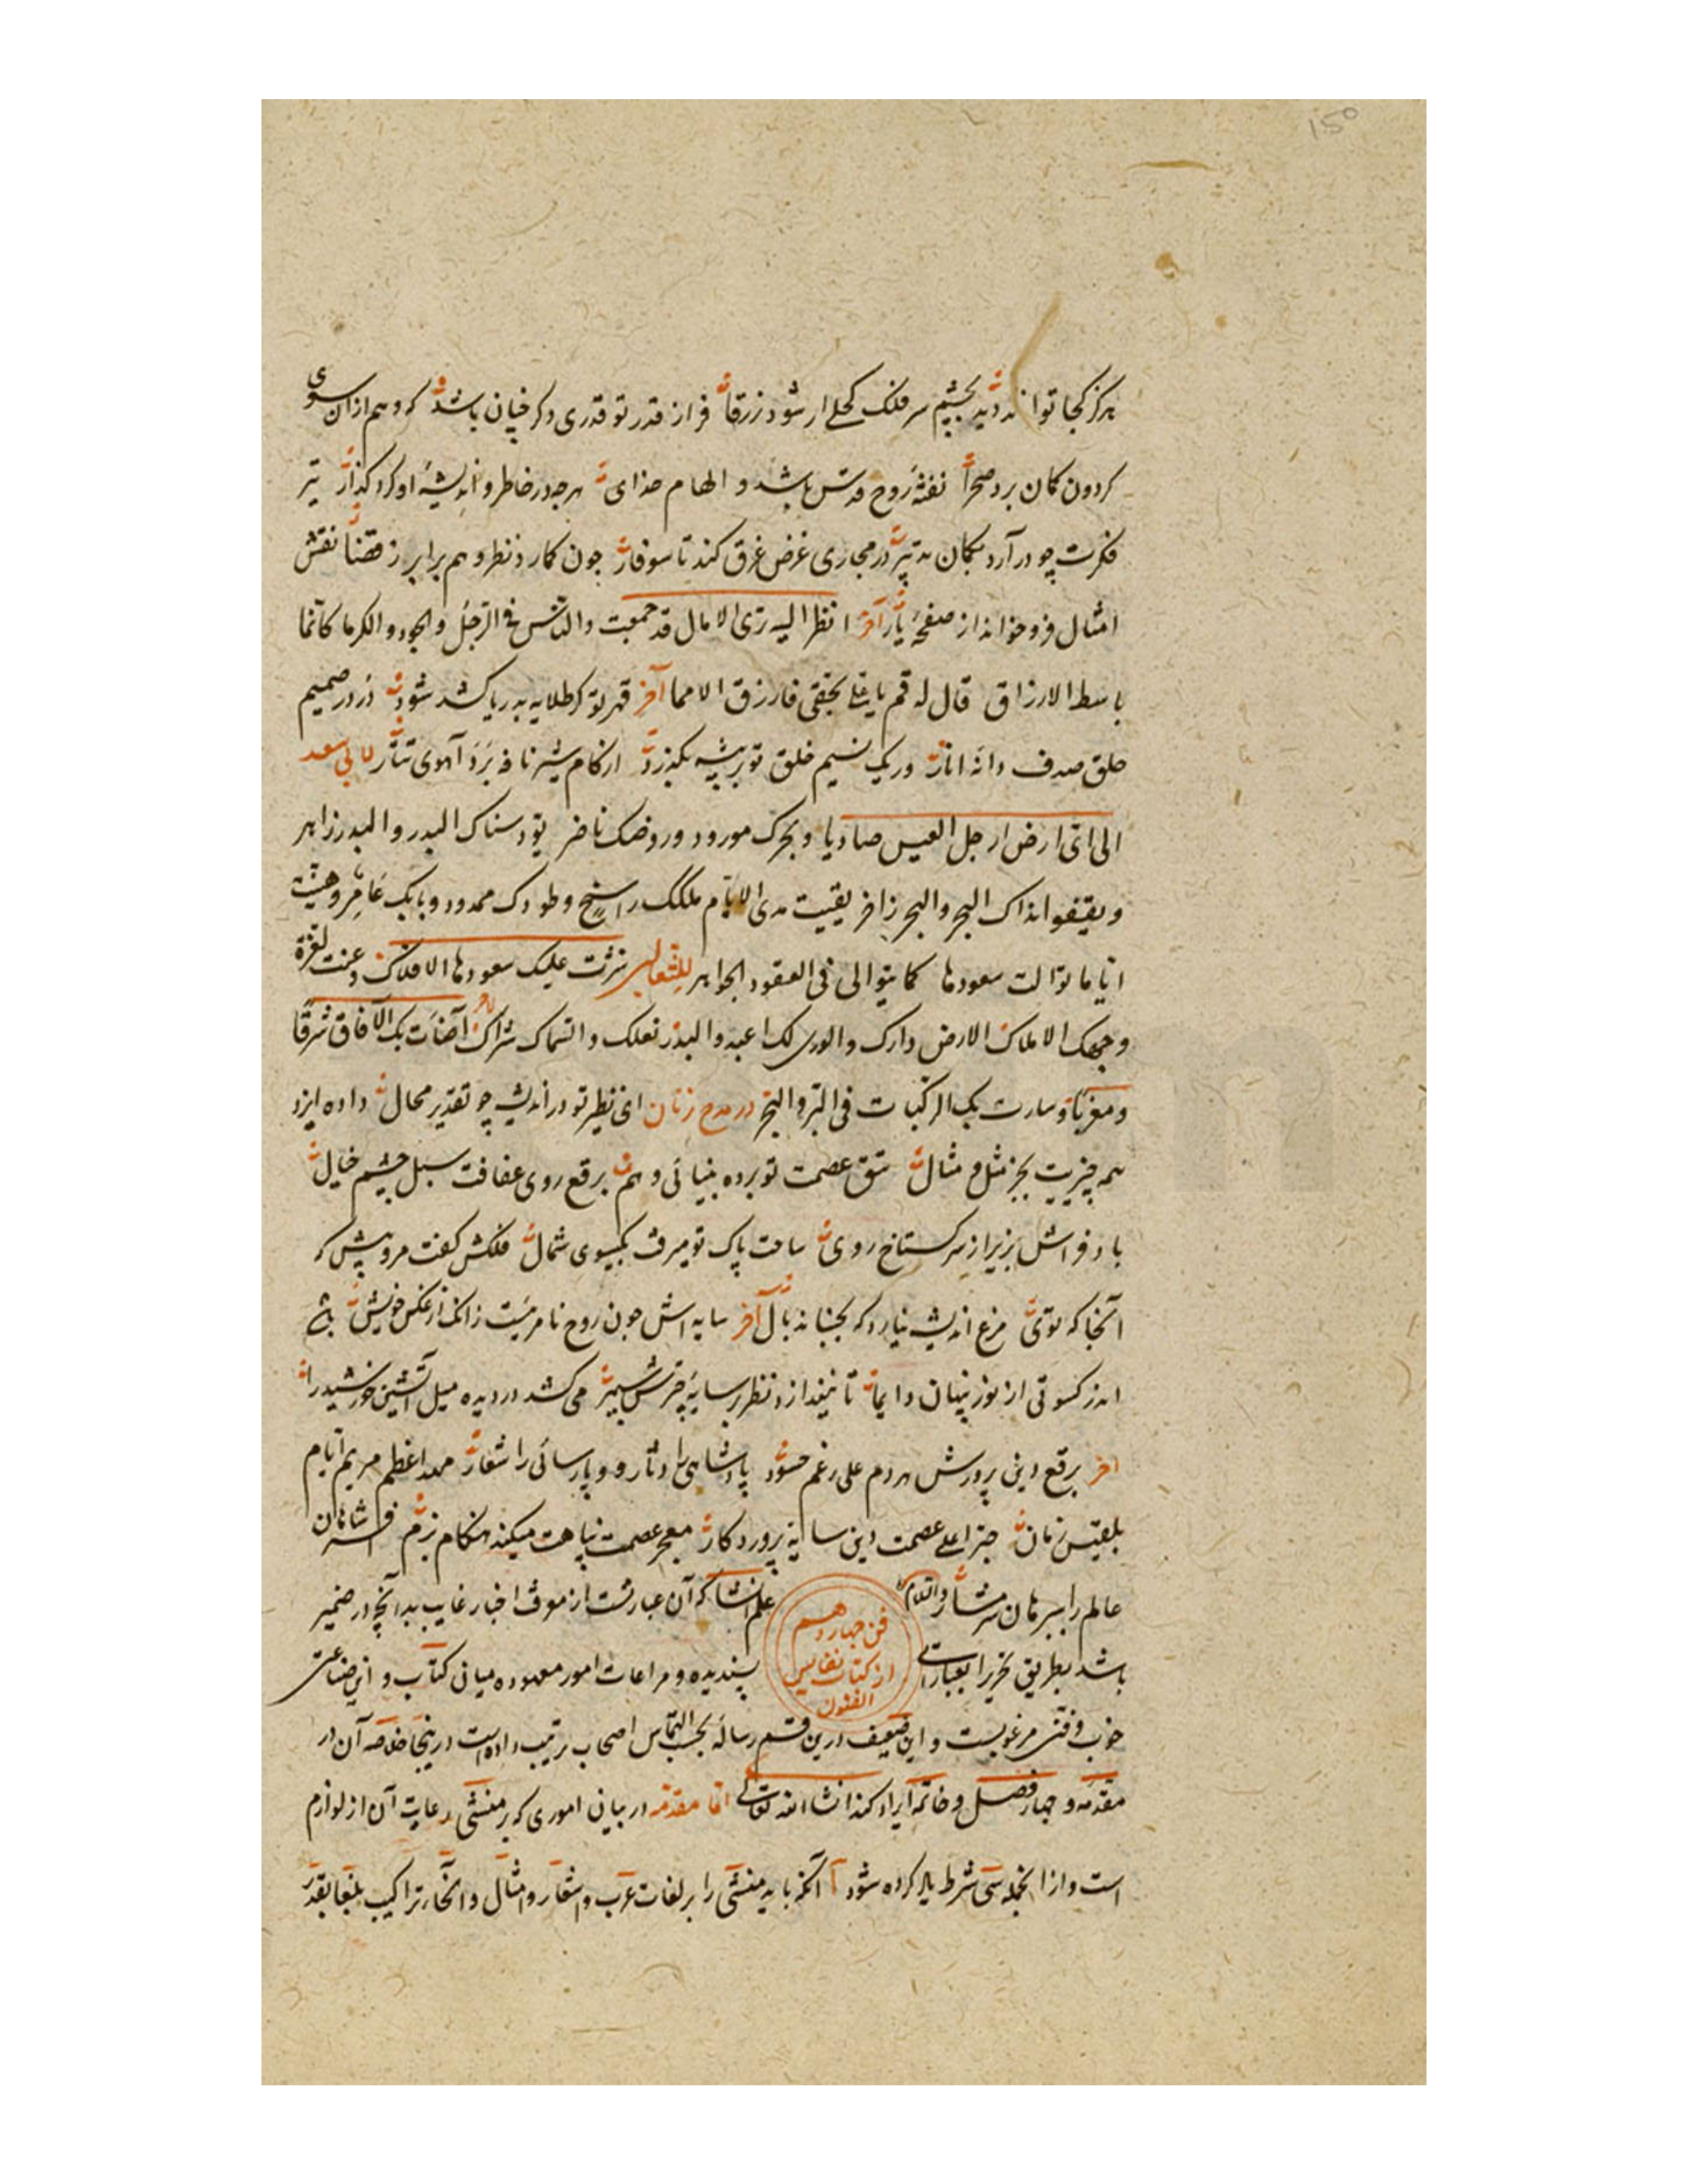 150
هرکز کجا تواند دید بچشم سر فلک کحلی ار شود زرقا فراز قدر تو قدری دکر چنان باشد که وهم ازان سوی
کردون کمان برد صحرا نفثهٔ روح قدس باشد و الهام خدای هرچه در خاطر و اندیشه او کرد کذار تیر
فکرت چو در آرد بکمان تدبیر در مجاری غرض غرق کند تا سوفار چون کمارد نظر وهم برابر ز قضا نقش
امثال فرو خواند از صفحهٔ یار آخر انظر الیه تری الامال قد جمعت والناس فی الرجل والجود والکرما کانما
باسط الارزاق قال له قم یا فارزق الامما آخر قهر تو کر طلایه بدریا کشد شود در در صمیم
حلق صدف دانه انار ور یک نسیم خلق تو بر بیشه بکذرد از کام شیر نافه برد آهوی تتار لابی سعد
الی ای ارض ارجل العیس صادیا وبحرک مورود وروضک ناضر سناک البدر والبدر زاهر
ویقفو نداک البحر والبحر زاخر بقیت مدی الایام ملکک راسخ وطودک ممدود وبابک عامر
ایاما توالت سعودها کما یتوالی فی العقود الجواهر للثعالبی نثرت علیک سعودها الافلاک وعنت لغرة
وجهک الاملاک الارض دارک والوری لک اعبد والبدر نعلک والسماک شراک آخر اضاءت بک الآفاق شرقا
ومغربا وسارت بک الرکبات فی البر والبحر در مدح زنان ای نظیر تو در اندیشه چو تقدیر محال داده ایزد
همه چیزیت بجز مثل و مثال تتق عصمت تو پرده بینائی وهم برقع روی عفافت سبل چشم خیال
باد فراش بزیر از سر کستاخ روی ساحت پاک تو میرفت بکیسوی شمال فلکش کفت مرو پیش که
آنجا که توی مرغ اندیشه نیارد که بجنباند بال آخر سایه اش چون روح نامرئیست زانک از عکس خویش
اندر کسوتی از نور پنهان دایما تا نیندازد نظر بر سایهٔ چترش سپهر می کشد در دیده میل آتشین خورشید را
آخر برقع دین پرورش هردم علی رغم حسود پادشاهی را دثار و پارسائی را شعار مهد اعظم مریم ایام
بلقیس زمان عصمت دین سایهٔ پروردکار معجر عصمت پناهت میکند هنکام بزم افسر شاهان
عالم را والسلام علم انشا که آن عبارتست از موقوف اخبار غایب بدانچه در ضمیر
فن چهاردهم از کتاب نفایس الفنون
باشد بطریق تحریر بعباراتی پسندیده و مراعات امور معهوده میانی کتاب و این صناعتی
خوب و فنی مرغوبست و این ضعیف درین قسم رساله بحسب التماس اصحاب ترتیب داده است درینجا خلاصه آن در
مقدمه و چهار فصل و خاتمه ایراد کند انشا الله تعالی اما مقدمه در بیان اموری که بر منشی رعایت آن از لوازم
است و از انجمله سی شرط یاد کرده شود آ آنکه باید منشی را بر لغات عرب و اشعار و امثال و انحاء تراکیب بلغا بقدر